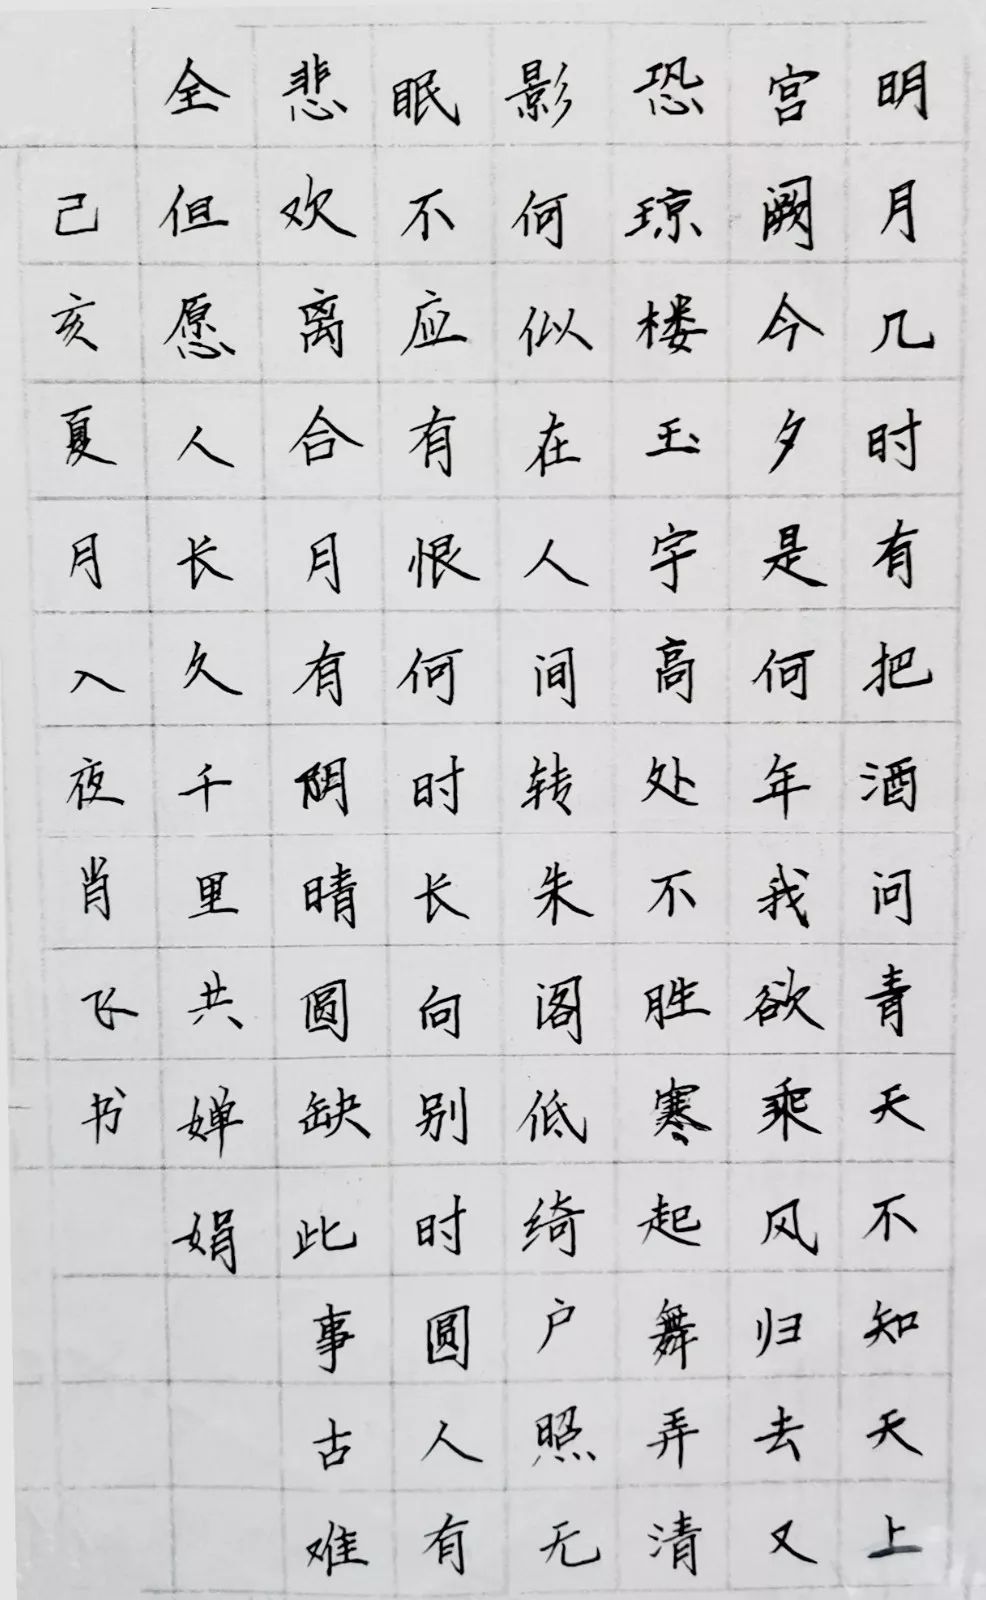 明月几时有把酒问青天不知天上
宫阙今夕是何年我欲乘风归去又
恐琼楼玉宇高处不胜寒起舞弄清
影何似在人间转朱阁低绮户照无
眠不应有恨何时长向别时圆人有
悲欢离合月有阴晴圆缺此事古难
全但愿人长久千里共婵娟
己亥夏月入夜肖飞书